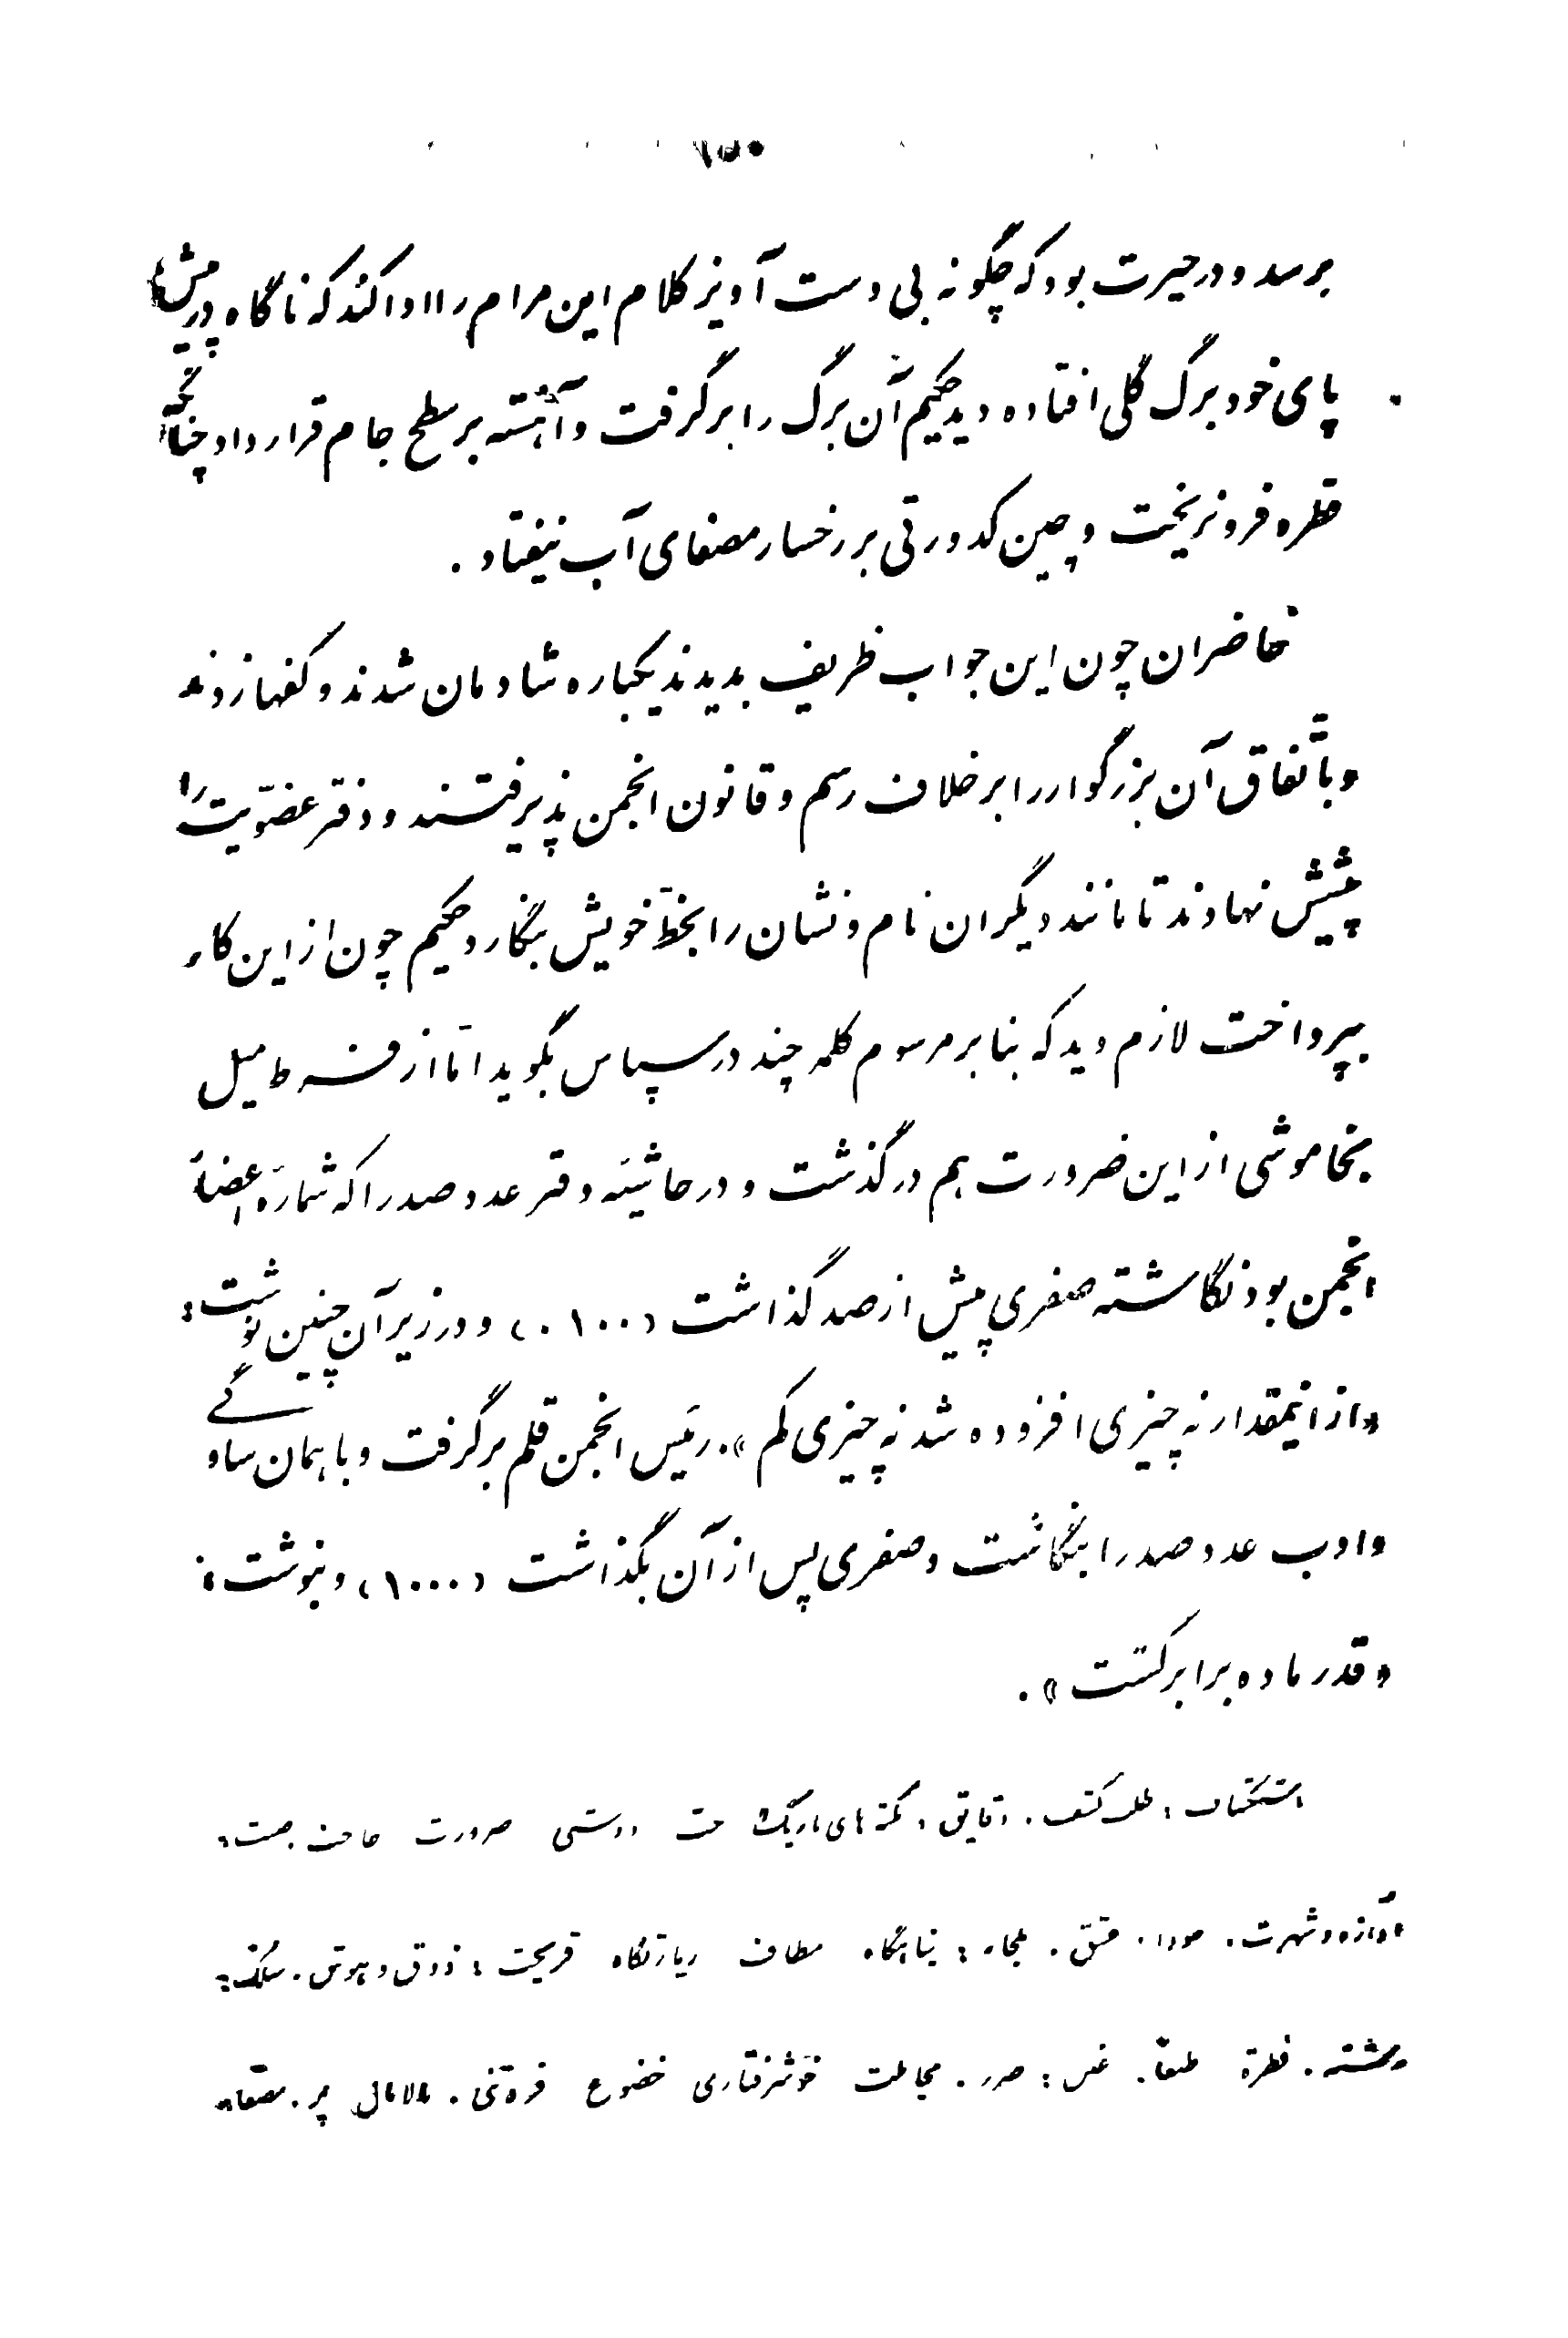 ۱۵۰
برسد و در حیرت بود که چگونه بی دست آویز کلام این مرام را ادا کند که ناگاه در پیش
پای خود برگ گلی افتاده دید حکیم آن برگ را بر گرفت و آهسته بر سطح جام قرار داد چنانکه
قطره فرو نریخت و چین کدورتی بر رخسار مصفای آب نیفتاد .
حاضران چون این جواب ظریف بدیدند یکباره شادمان شدند و کفها زدند
و باتّفاق آن بزرگوار را بر خلاف رسم و قانون انجمن پذیرفتند و دفتر عضویّت را
پیشش نهادند تا مانند دیگران نام و نشان را بخطّ خویش بنگارد حکیم چون از این کار
بپرداخت لازم دید که بنا بر مرسوم کلمه چند در سپاس بگوید امّا از فرط میل
بخاموشی از این ضرورت هم در گذشت و در حاشیهٔ دفتر عدد صد را که شمارهٔ اعضاء
انجمن بود نگاشته صفری پیش از صد گذاشت (۰۱۰۰) و در زیر آن چنین نوشت:
«از اینمقدار نه چیزی افزوده شد نه چیزی کم». رئیس انجمن قلم بر گرفت و با همان سادگی
و ادب عدد صد را بنگاشت و صفری پس از آن بگذاشت (۱۰۰۰) و بنوشت:
«قدر ما ده برابر گشت».
استکشاف: طلب کشف. دقایق: نکته های باریک درستی ضرورت حاجت صیت:
آوازه و شهرت. سودا: عشق. ملجاء: پناهگاه مطاف زیارتگاه قریحت: ذوق و هوش. سلک:
رشته. فطرة طبعاً. غبن: ضرر. مجاملت خوشرفتاری خضوع فروتنی. مالامال پر. مصفا: